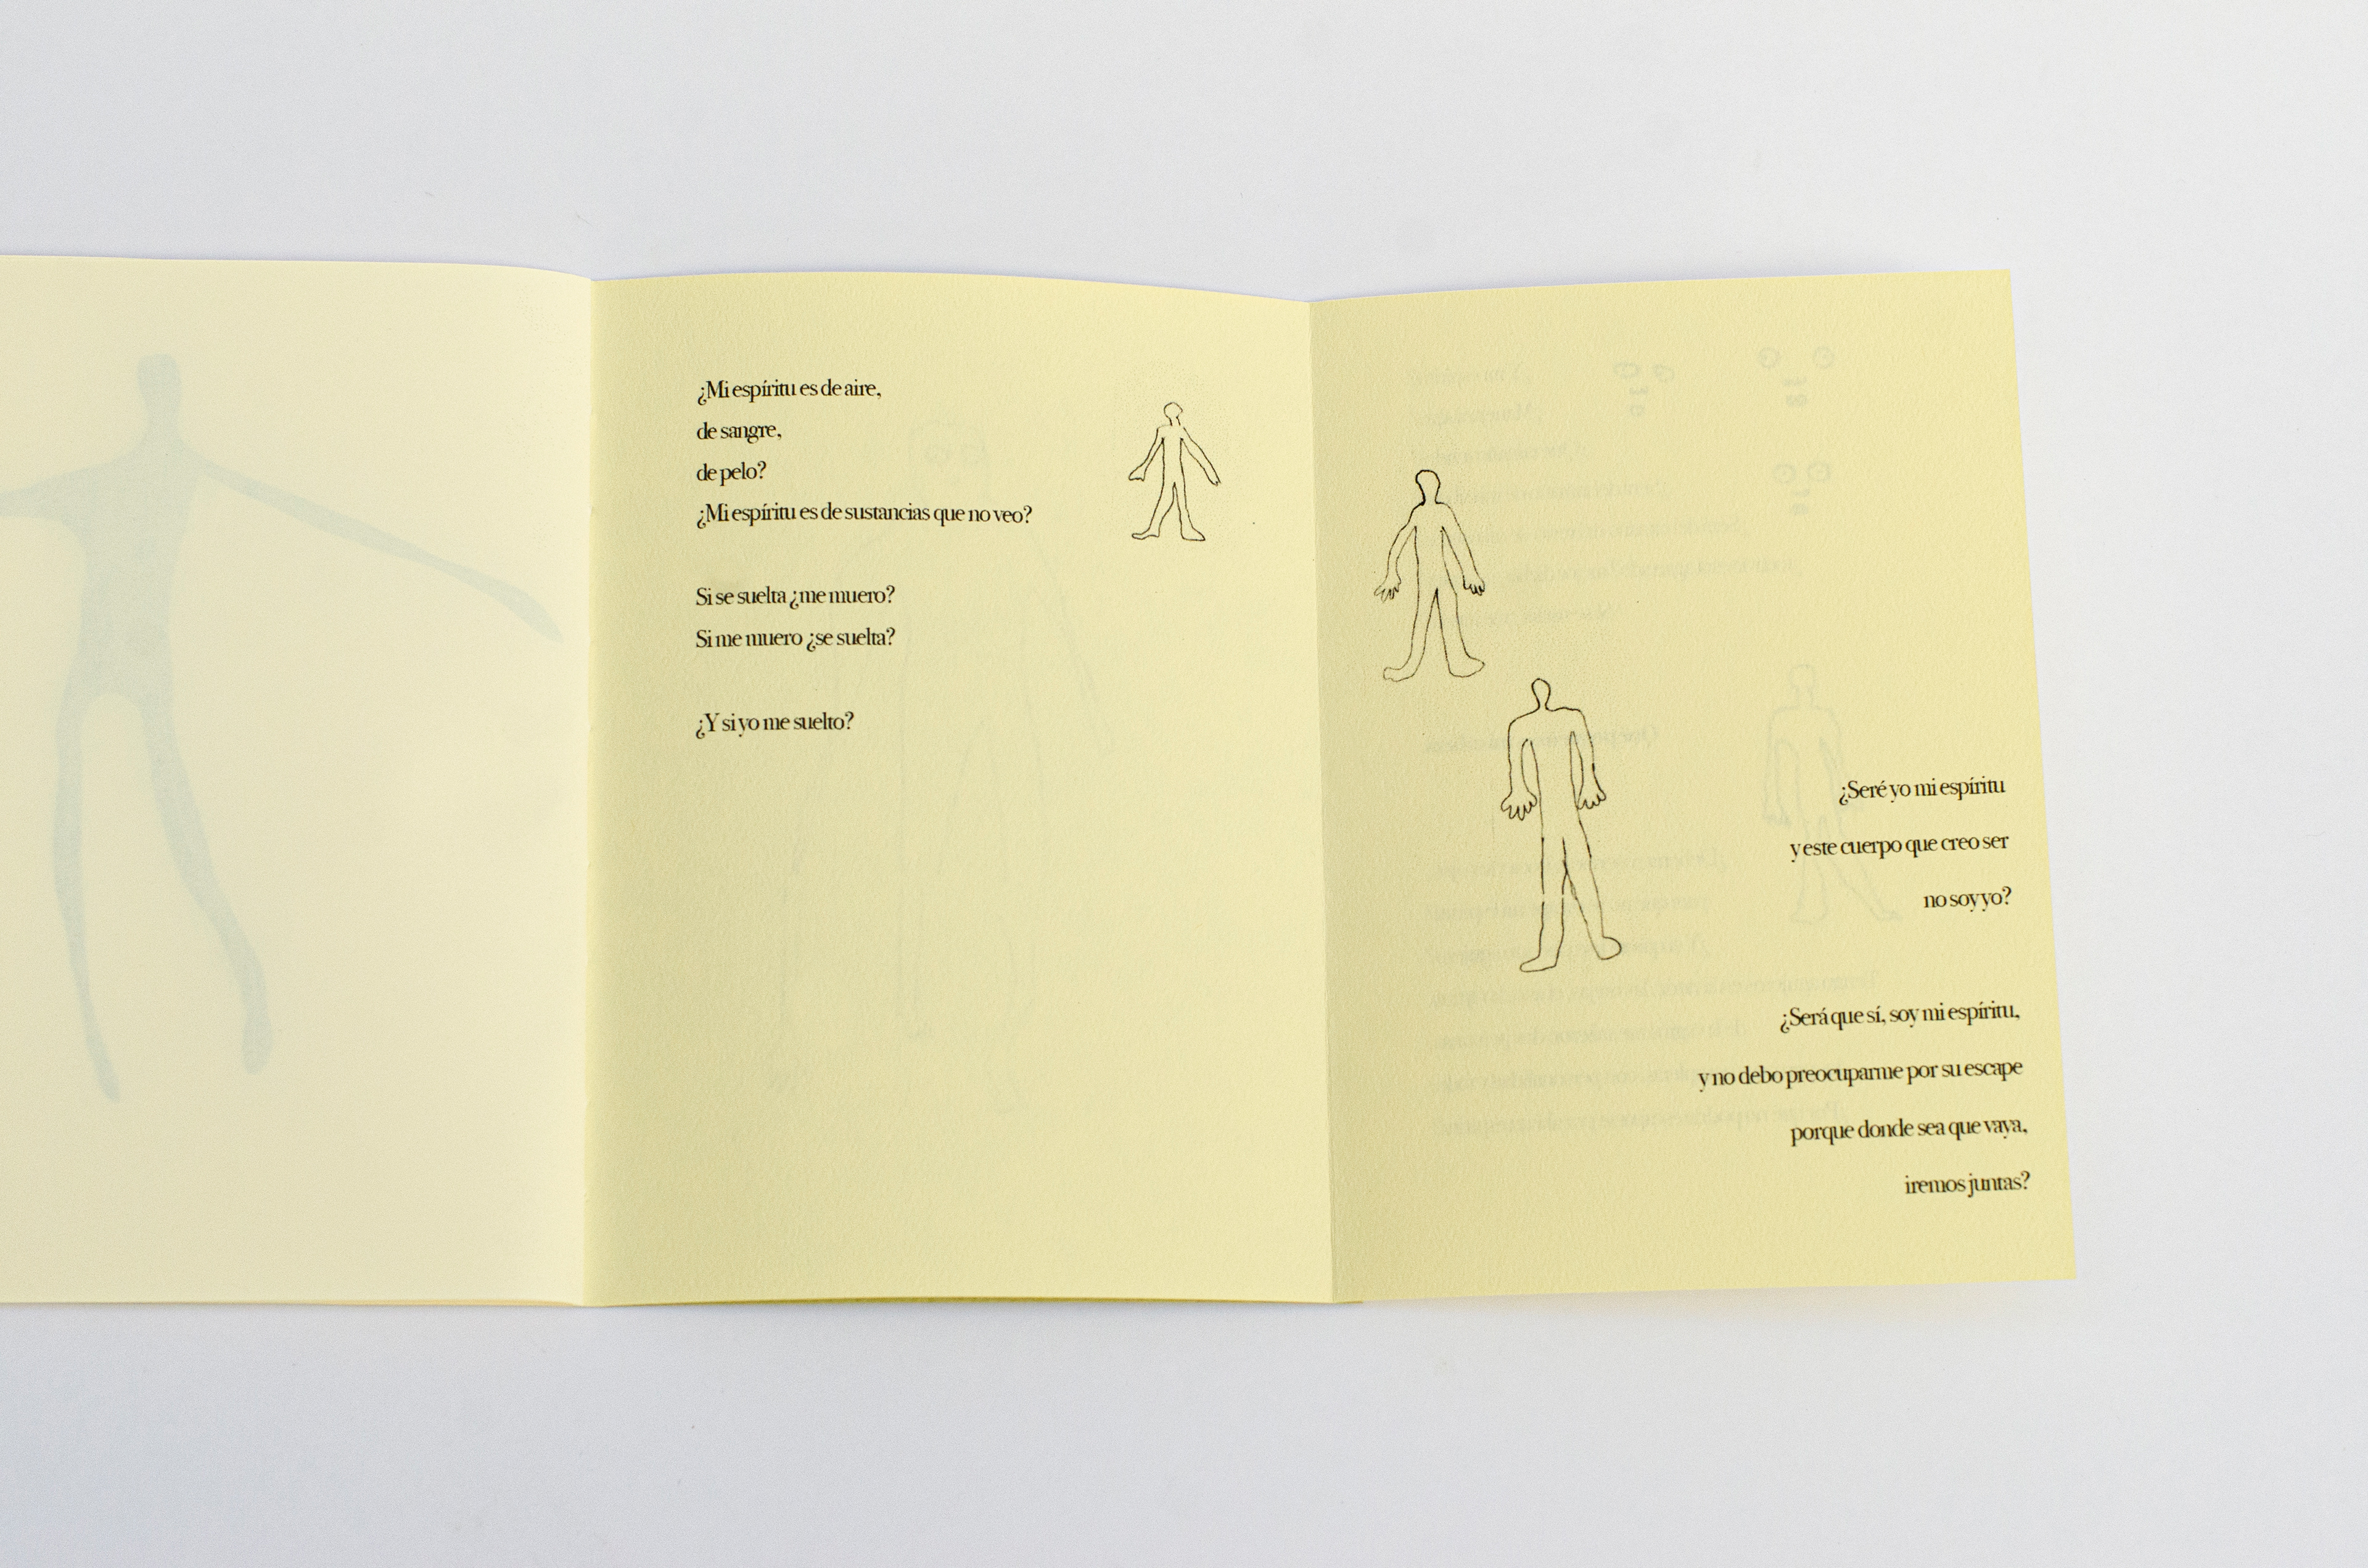 ¿Mi espíritu es de aire,
de sangre,
de pelo?
¿Mi espíritu es de sustancias que no veo?
Si se suelta ¿me muero?
Si me muero ¿se suelta?
¿Y si yo me suelto?
¿Seré yo mi espíritu
y este cuerpo que creo ser
no soy yo?
¿Será que sí, soy mi espíritu,
y no debo preocuparme por su escape
porque donde sea que vaya,
iremos juntas?